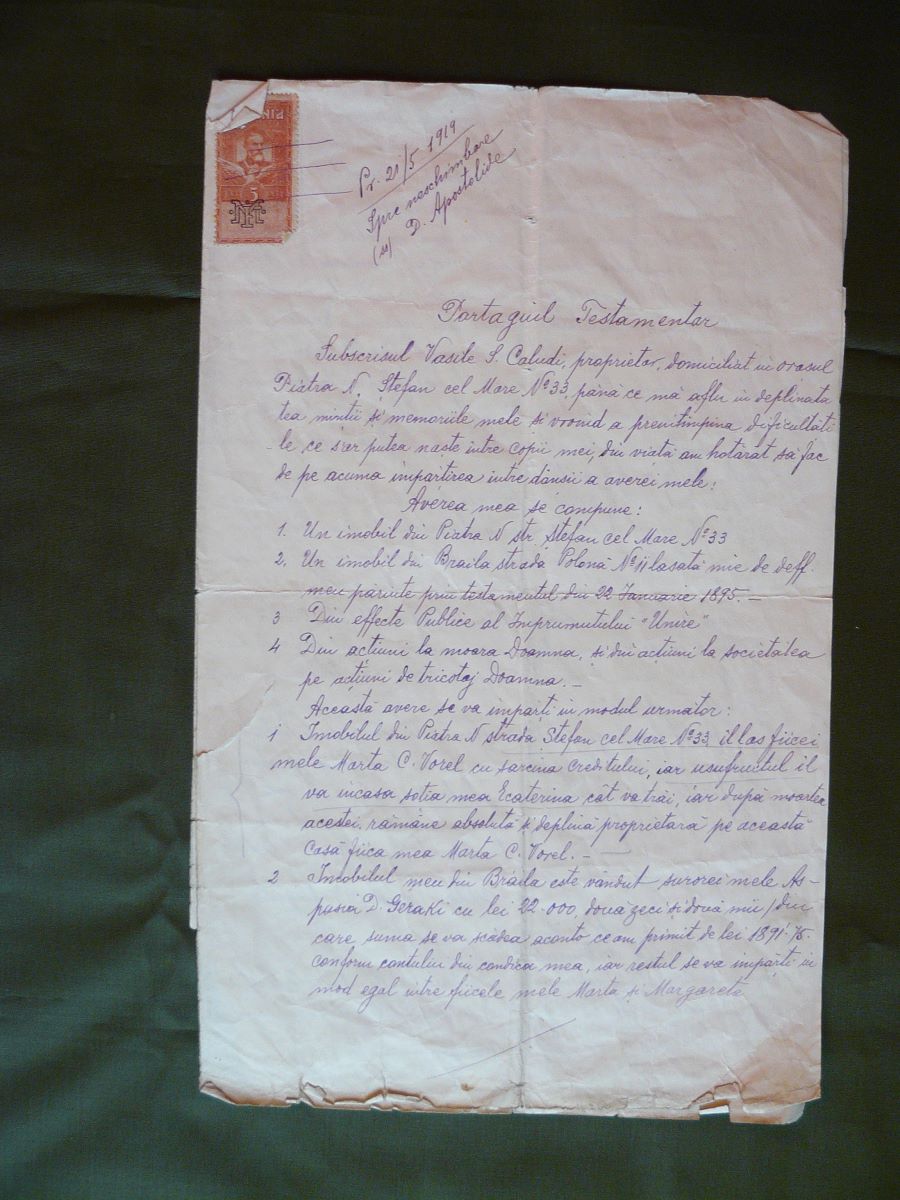 5
Pr. 21/5 1919
Spre neschimbare
(ss) D. Apostolide
Partagiul Testamentar
Subscrisul Vasile S. Caludi, proprietar, domiciliat in orasul
Piatra N. Ștefan cel Mare Nº 33, până ce mă aflu in deplinata
tea mintii și memoriile mele și vroind a preintimpina dificultati
le ce s'ar putea naște intre copii mei, din viață am hotărat să fac
de pe acuma impărtirea intre dânsii a averei mele:
Averea mea se compune:
1. Un imobil din Piatra N str. Ștefan cel Mare Nº 33
2. Un imobil din Braila strada Polonă Nº 11 lasată mie de deff.
meu părinte prin testamentul din 22 Ianuarie 1895. —
3 Din effecte Publice al Imprumutului "Unire"
4 Din acțiuni la moara Doamna, și din acțiuni la societatea
pe acțiuni de tricotaj Doamna. —
Această avere se va imparți in modul urmator:
1 Imobilul din Piatra N strada Ștefan cel Mare Nº 33, il las fiicei
mele Marta C. Vorel cu sarcina Creditului, iar usufructul il
va incasa soția mea Ecaterina cât va trăi, iar după moartea
acestei, rămâne absolută și deplină proprietară pe această
Casă fiica mea Marta C. Vorel. —
2 Imobilul meu din Brăila este vândut surorei mele As-
pasia D. Geraki cu lei 22.000, doua zeci și două mii / din
care, suma se va scădea aconto ce am primit de lei 1891.75.
conform contului din condica mea, iar restul se va impărți in
mod egal intre fiicele mele Marta și Margareta